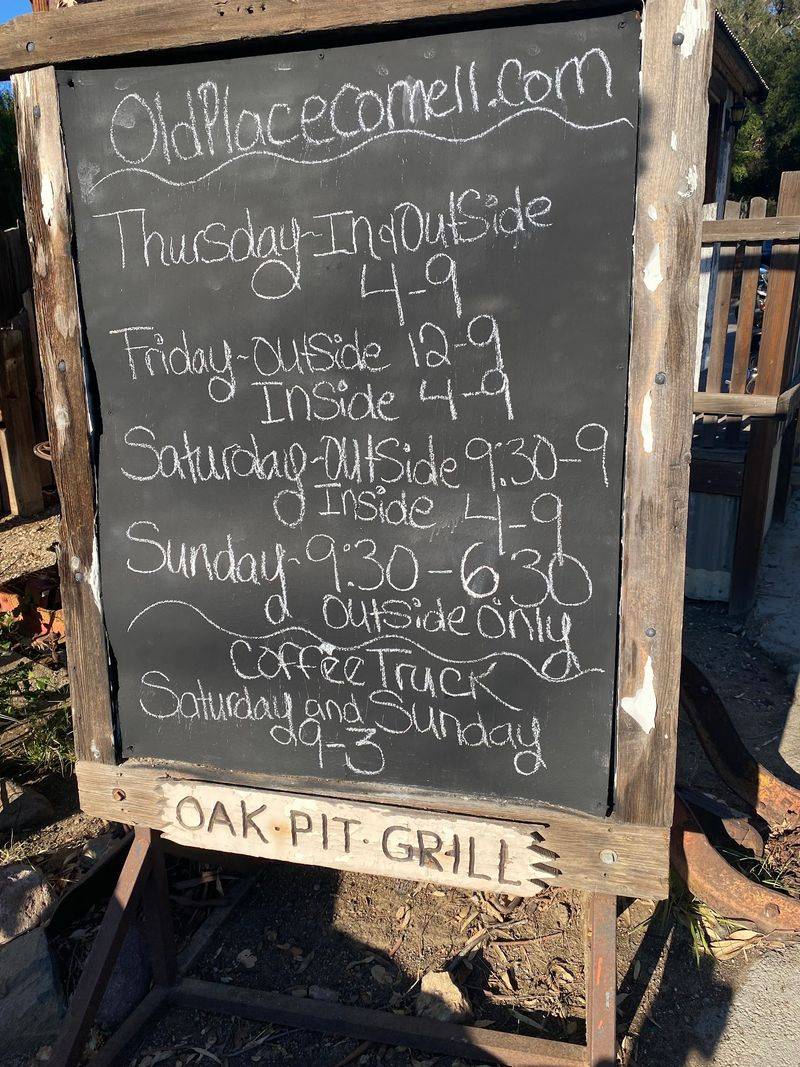 OldPlaceCornell.com
Thursday-In&OutSide
4-9
Friday-OutSide 12-9
InSide 4-9
Saturday-OutSide 9:30-9
InSide 4-9
Sunday-9:30-6:30
OutSide only
Coffee Truck
Saturday and Sunday
9-3
OAK·PIT·GRILL